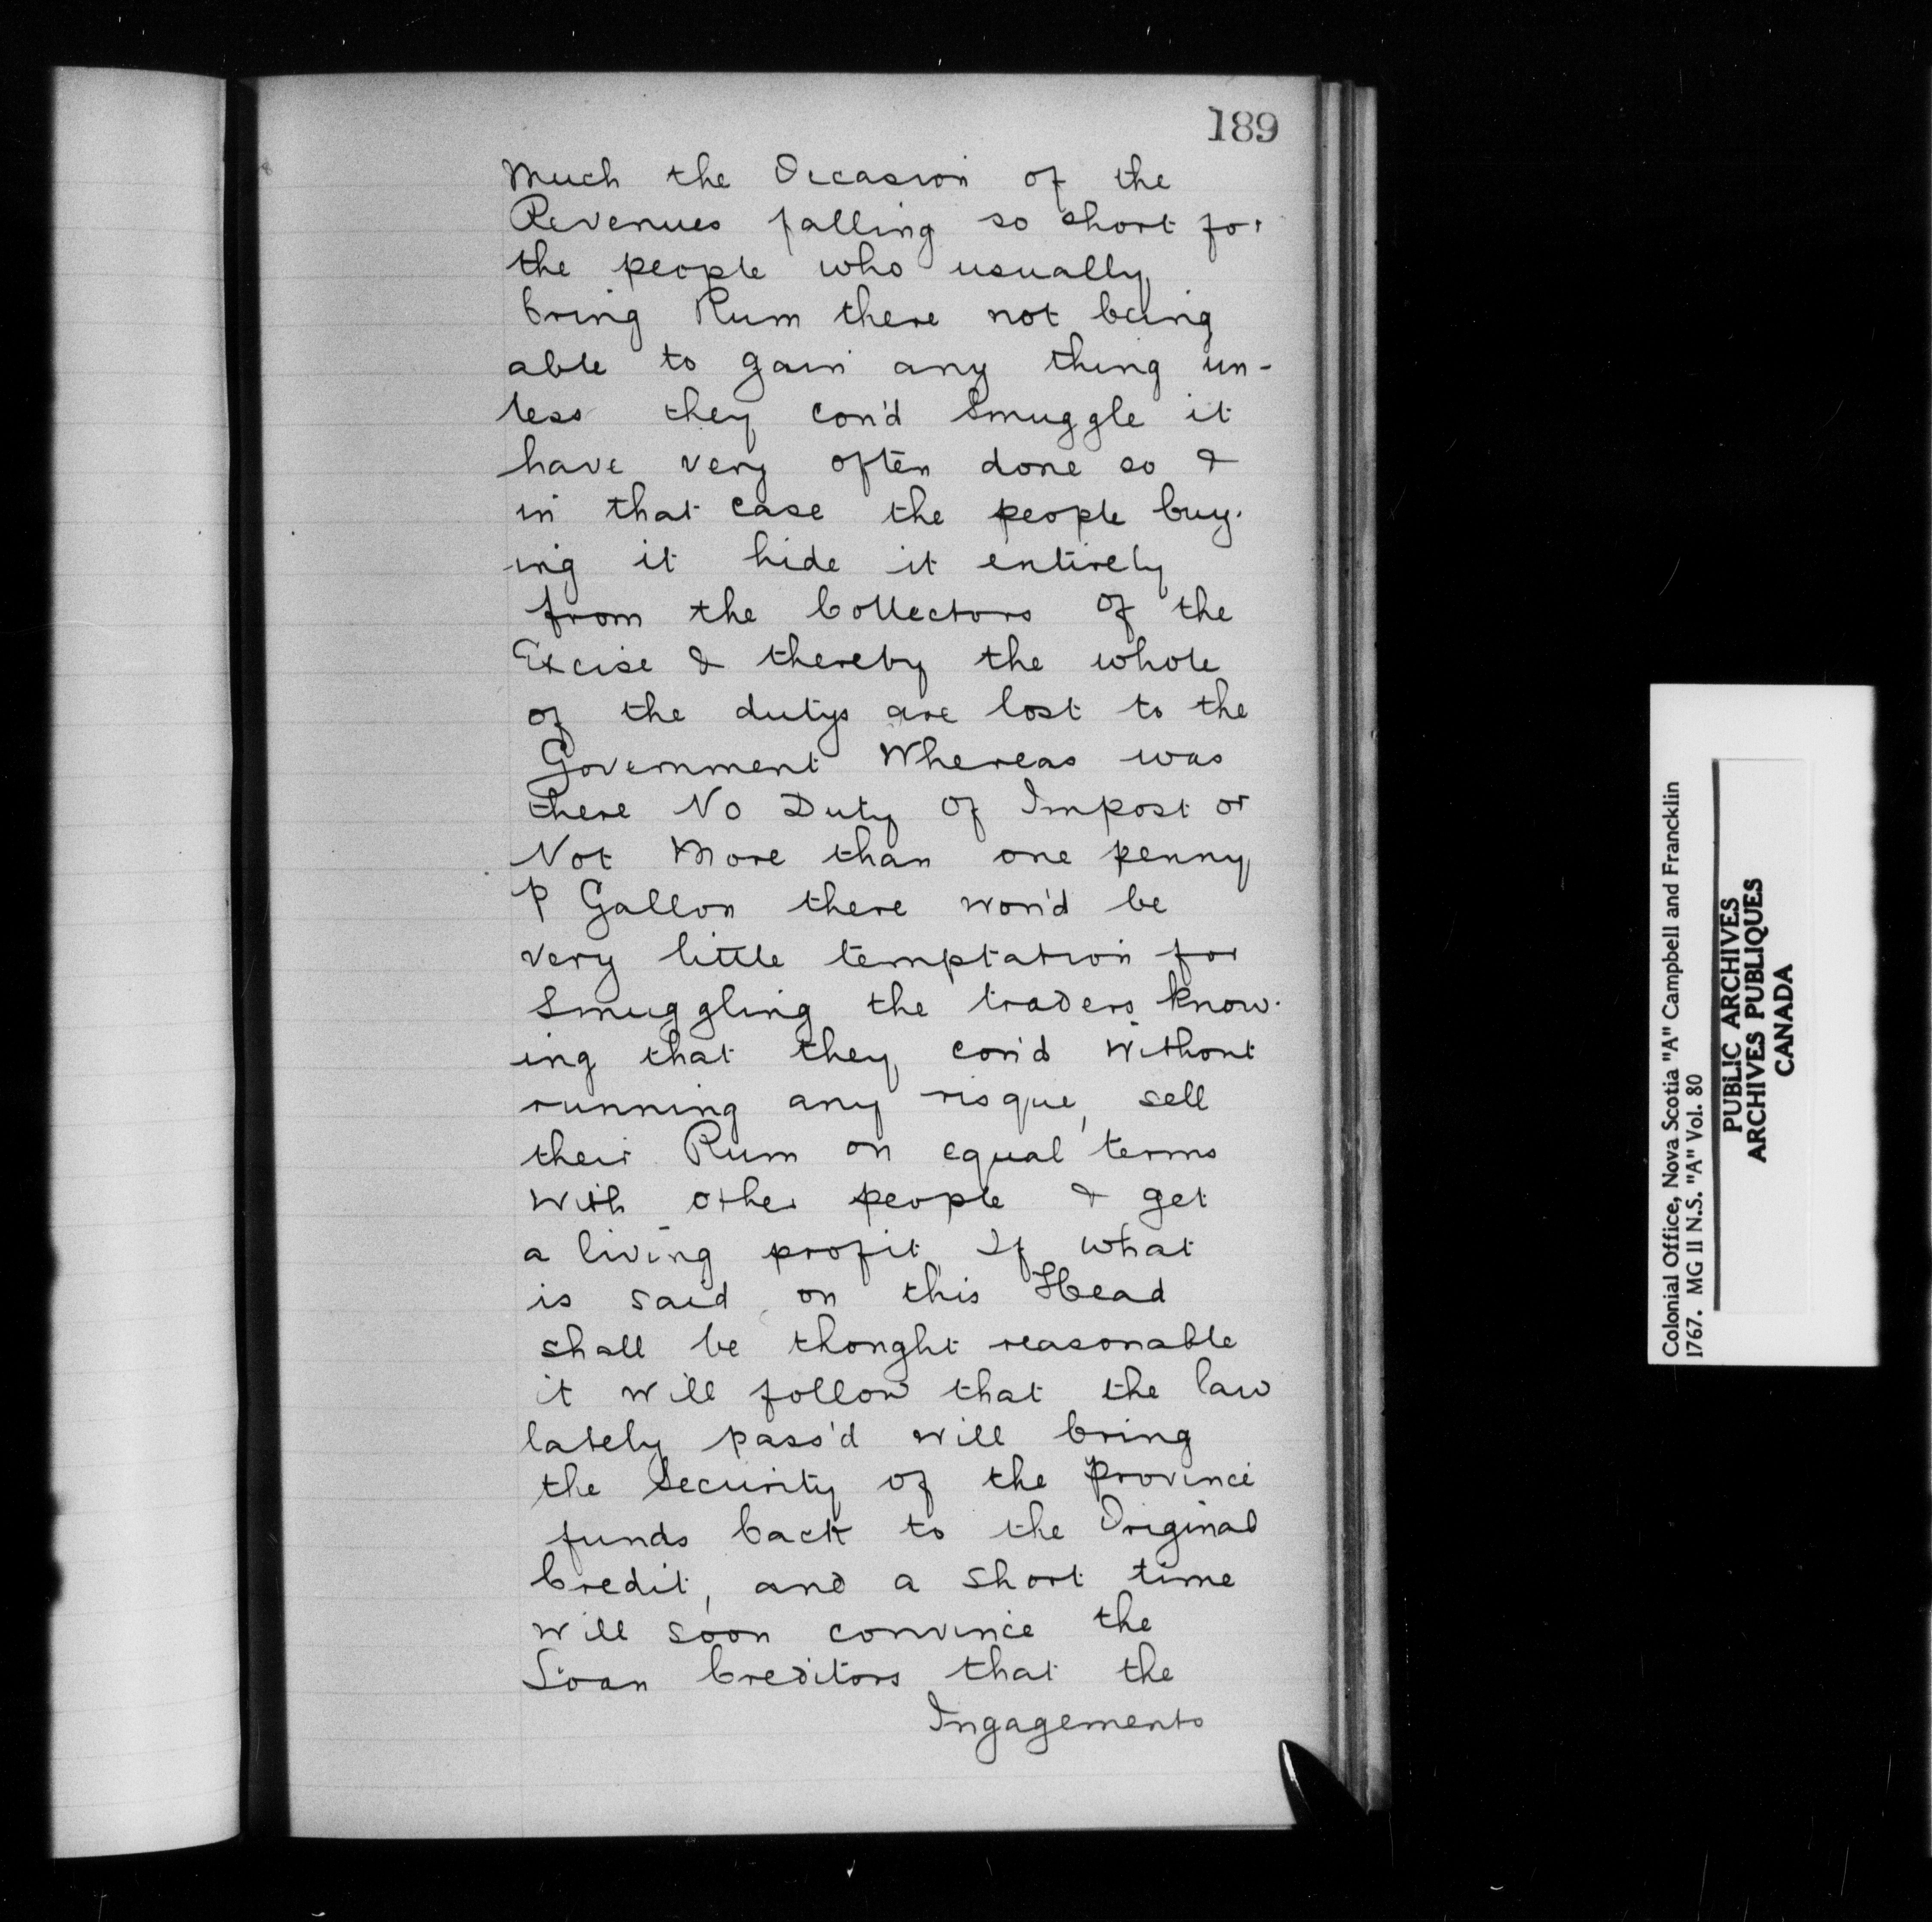 189
Much the Occasion of the
Revenues falling so short for
the people who usually
bring Rum there not being
able to gain any thing un-
less they cou'd Smuggle it
have very often done so &
in that case the people buy-
ing it hide it entirely
from the Collectors of the
Excise & thereby the whole
of the dutys are lost to the
Government Whereas was
there No Duty Of Impost or
Not More than one penny
P Gallon there wou'd be
very little temptation for
Smuggling the traders know-
ing that they cou'd without
running any risque, sell
their Rum on equal terms
with other people & get
a living profit If what
is said on this Head
shall be thought reasonable
it will follow that the law
lately pass'd will bring
the Security of the Province
funds back to the Original
Credit, and a short time
will soon convince the
Loan Creditors that the
Ingagements
Colonial Office, Nova Scotia "A" Campbell and Francklin
1767. MG 11 N.S. "A" Vol. 80
PUBLIC ARCHIVES
ARCHIVES PUBLIQUES
CANADA